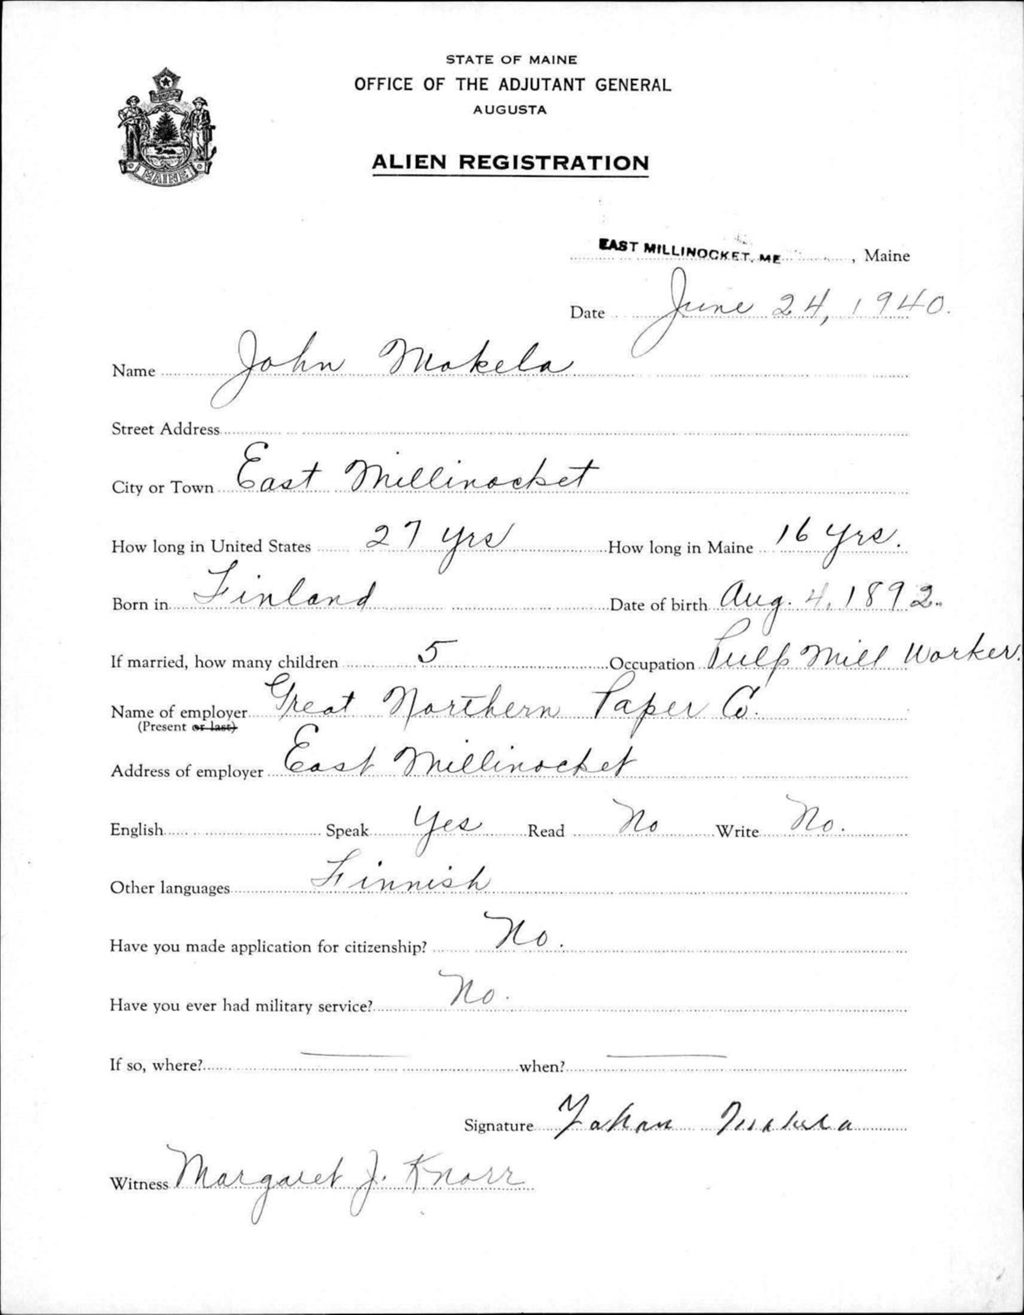 STATE OF MAINE
OFFICE OF THE ADJUTANT GENERAL
AUGUSTA
MAINE
ALIEN REGISTRATION
EAST MILLINOCKET, ME , Maine
Date June 24, 1940.
Name John Makela
Street Address
City or Town East Millinocket
How long in United States 27 yrs How long in Maine 16 yrs.
Born in Finland Date of birth Aug. 4, 1892.
If married, how many children 5 Occupation Pulp Mill Worker.
Name of employer Great Northern Paper Co.
(Present or last)
Address of employer East Millinocket
English Speak Yes Read No Write No.
Other languages Finnish
Have you made application for citizenship? No.
Have you ever had military service? No.
If so, where? when?
Signature Makela
Witness Margaret J. Knorr